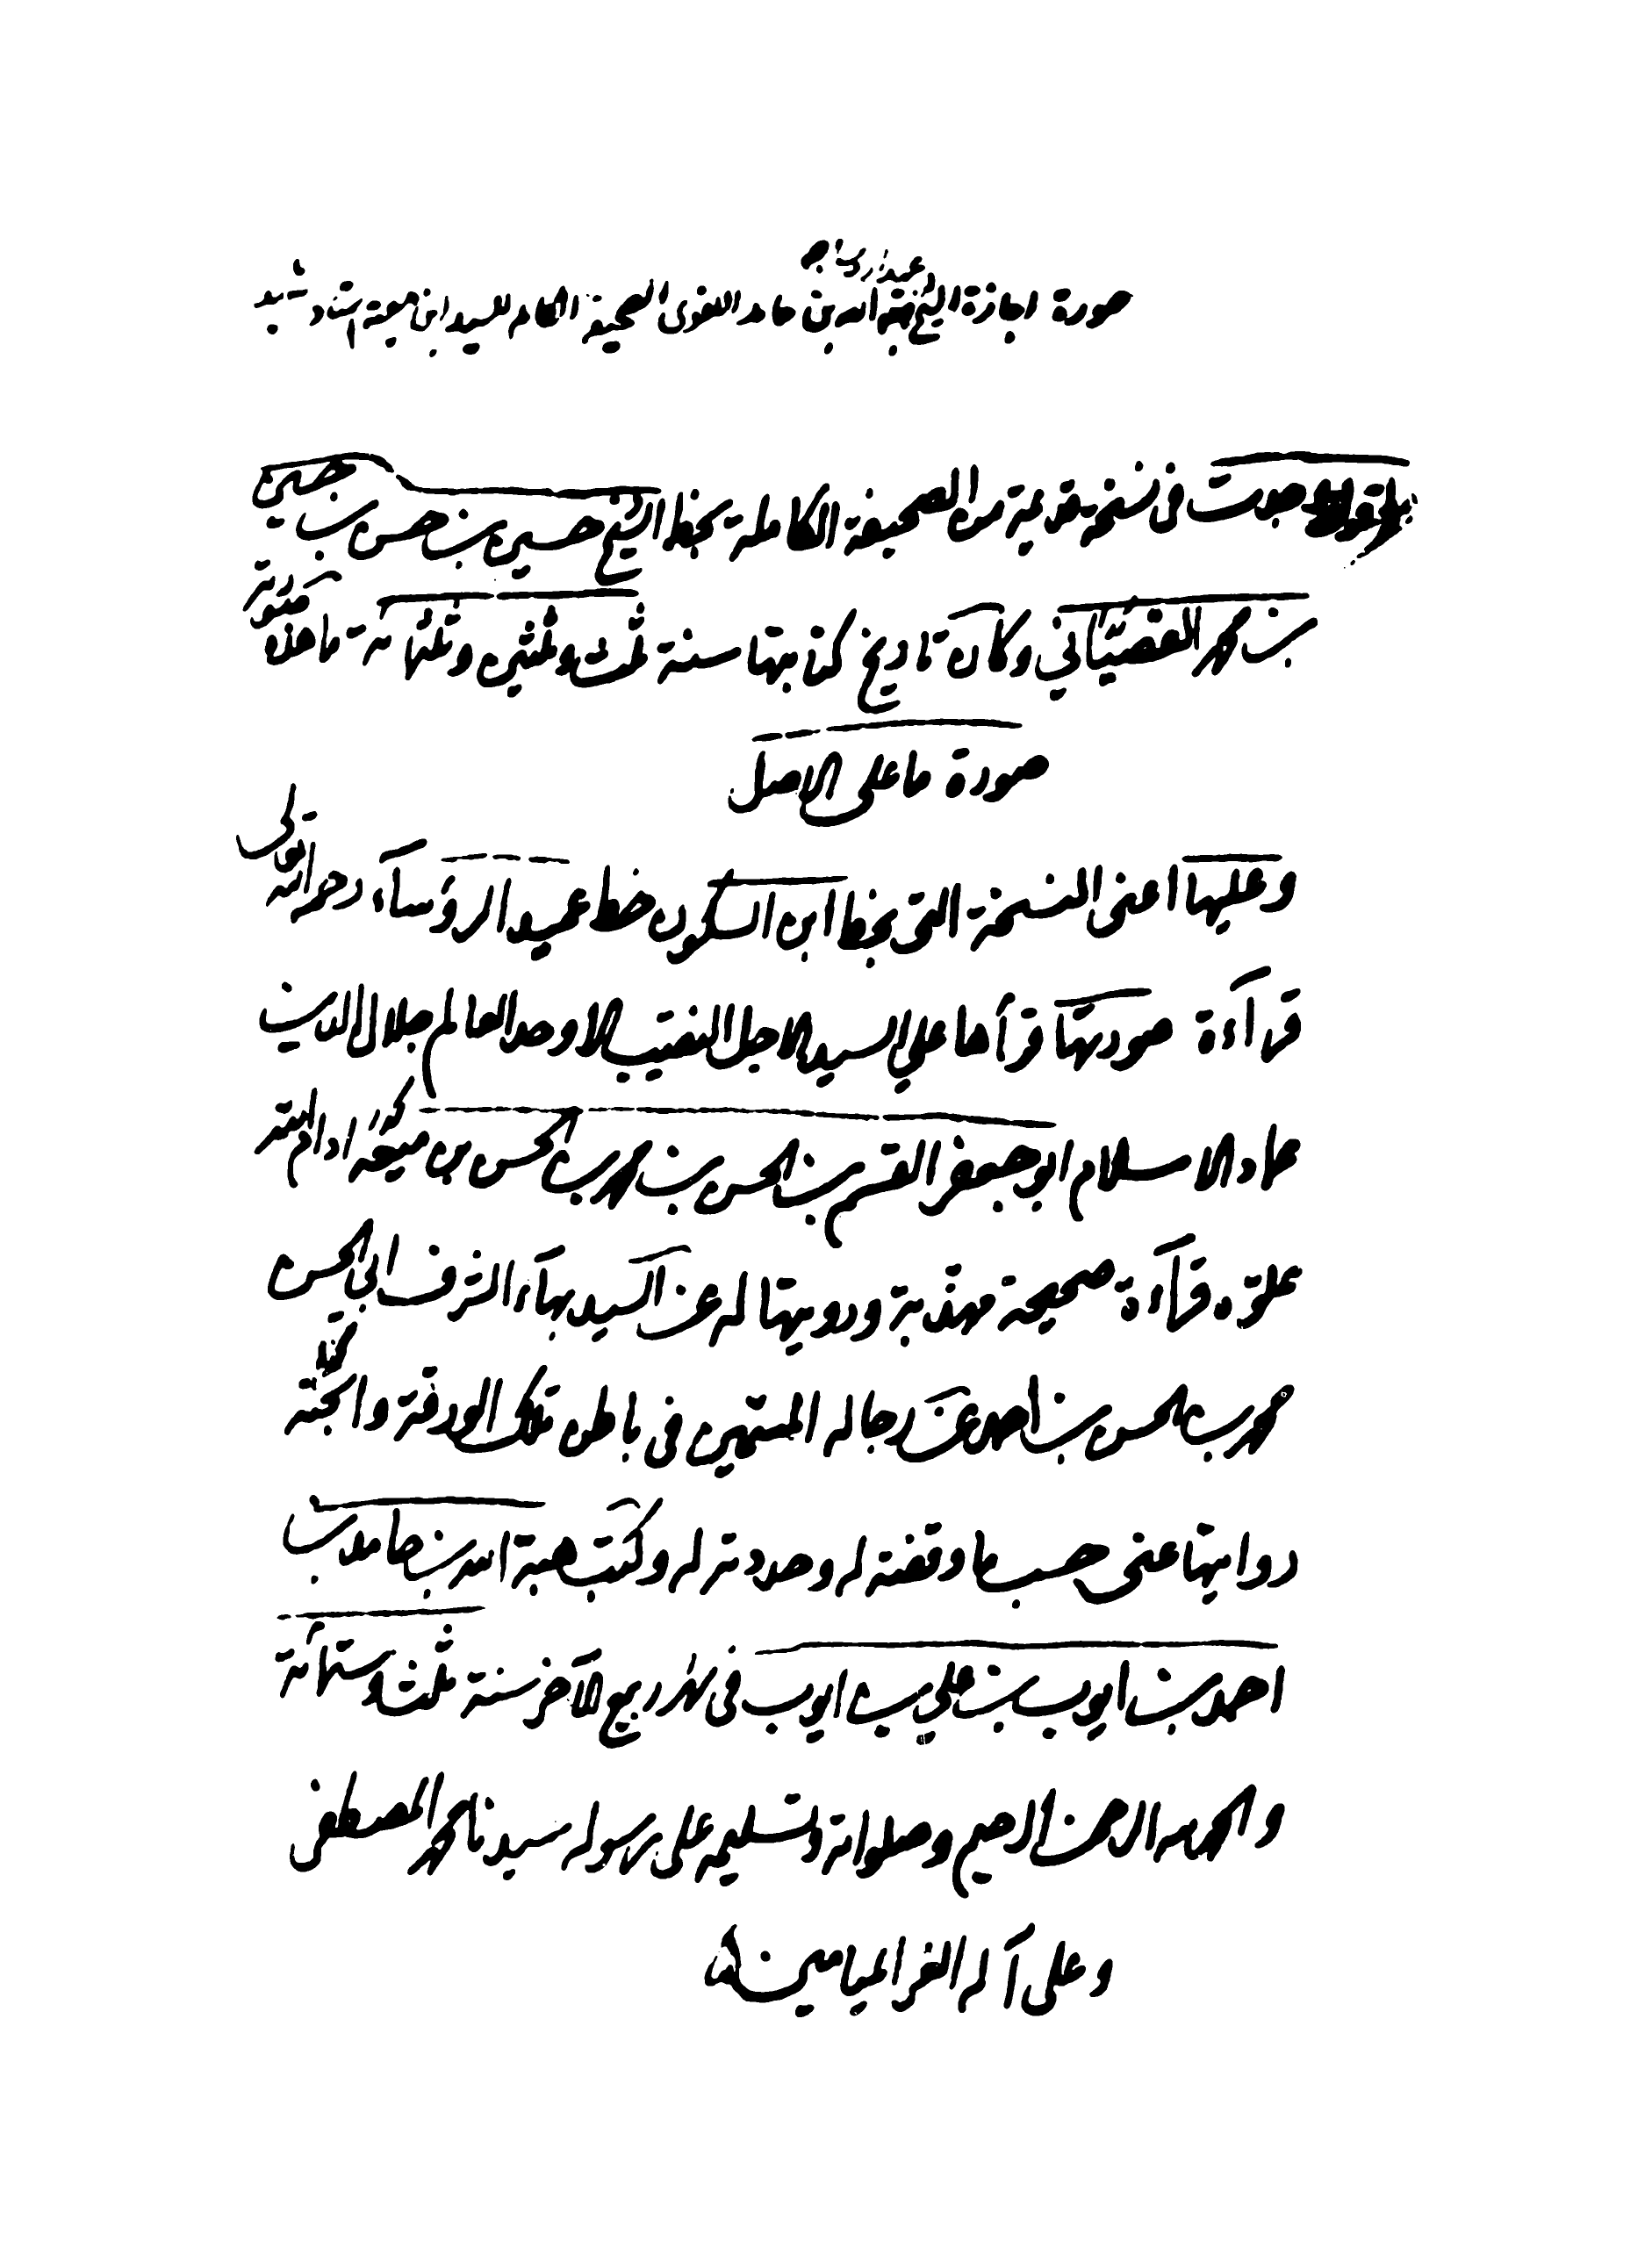 عميد الرؤساء
صورة اجازة الشيخ هبة الله بن حامد اللغوى الصحيفة الكامله للسيد ابن معية استاد شهيد
وجدت فى نسخة قديمة من الصحيفة الكاملة بخط الشيخ حسين بن حسن بن حسين
بن محمد القصبّاني وكان تاريخ كتابتها سنة ثلث وثلثين وثلثمائة ما هذه صورته
صورة ما على الاصل
وعليها اعنى النسخة التى بخط ابن السكون خط عميد الرؤساء رحمه الله تعالى
قراءة صورتها قرأها علي السيد الاجل النقيب الاوحد العالم جلال الدين
عماد الاسلام ابو جعفر القسم بن الحسن بن محمد بن الحسن بن معيّة ادام الله
علوّه قراءة صحيحة مهذبة ورويتها له عن السيد بهاء الشرف ابي الحسن
محمد بن الحسن بن احمد عن رجاله المسمّين فى باطن تلك الورقة وابحته
روايتها عنى حسب ما وقفته له وحددته له وكتب هبة الله بن حامد بن
احمد بن ايوب بن علي بن ايوب فى شهر ربيع الآخر سنة ثلث وستمائة
والحمد لله الرحمن الرحيم وصلواته وتسليمه على رسوله سيدنا محمد المصطفى
وعلى آله الغر الميامين